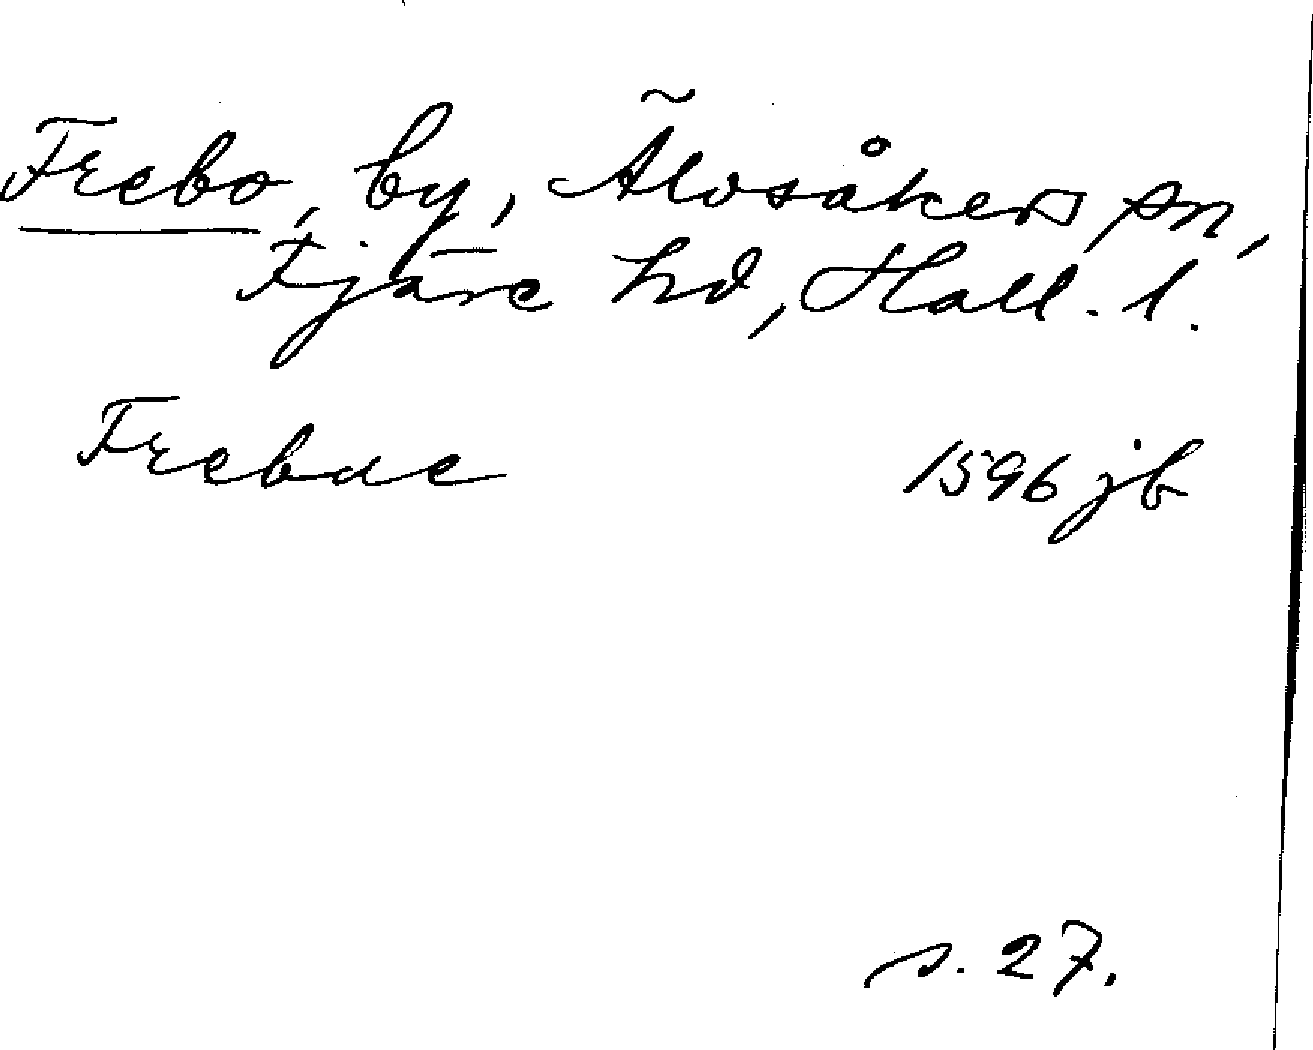 Frebo, by, Älvsåkers sn,
Fjäre hd, Hall. l.
Frebae 1596 jb
s. 27.